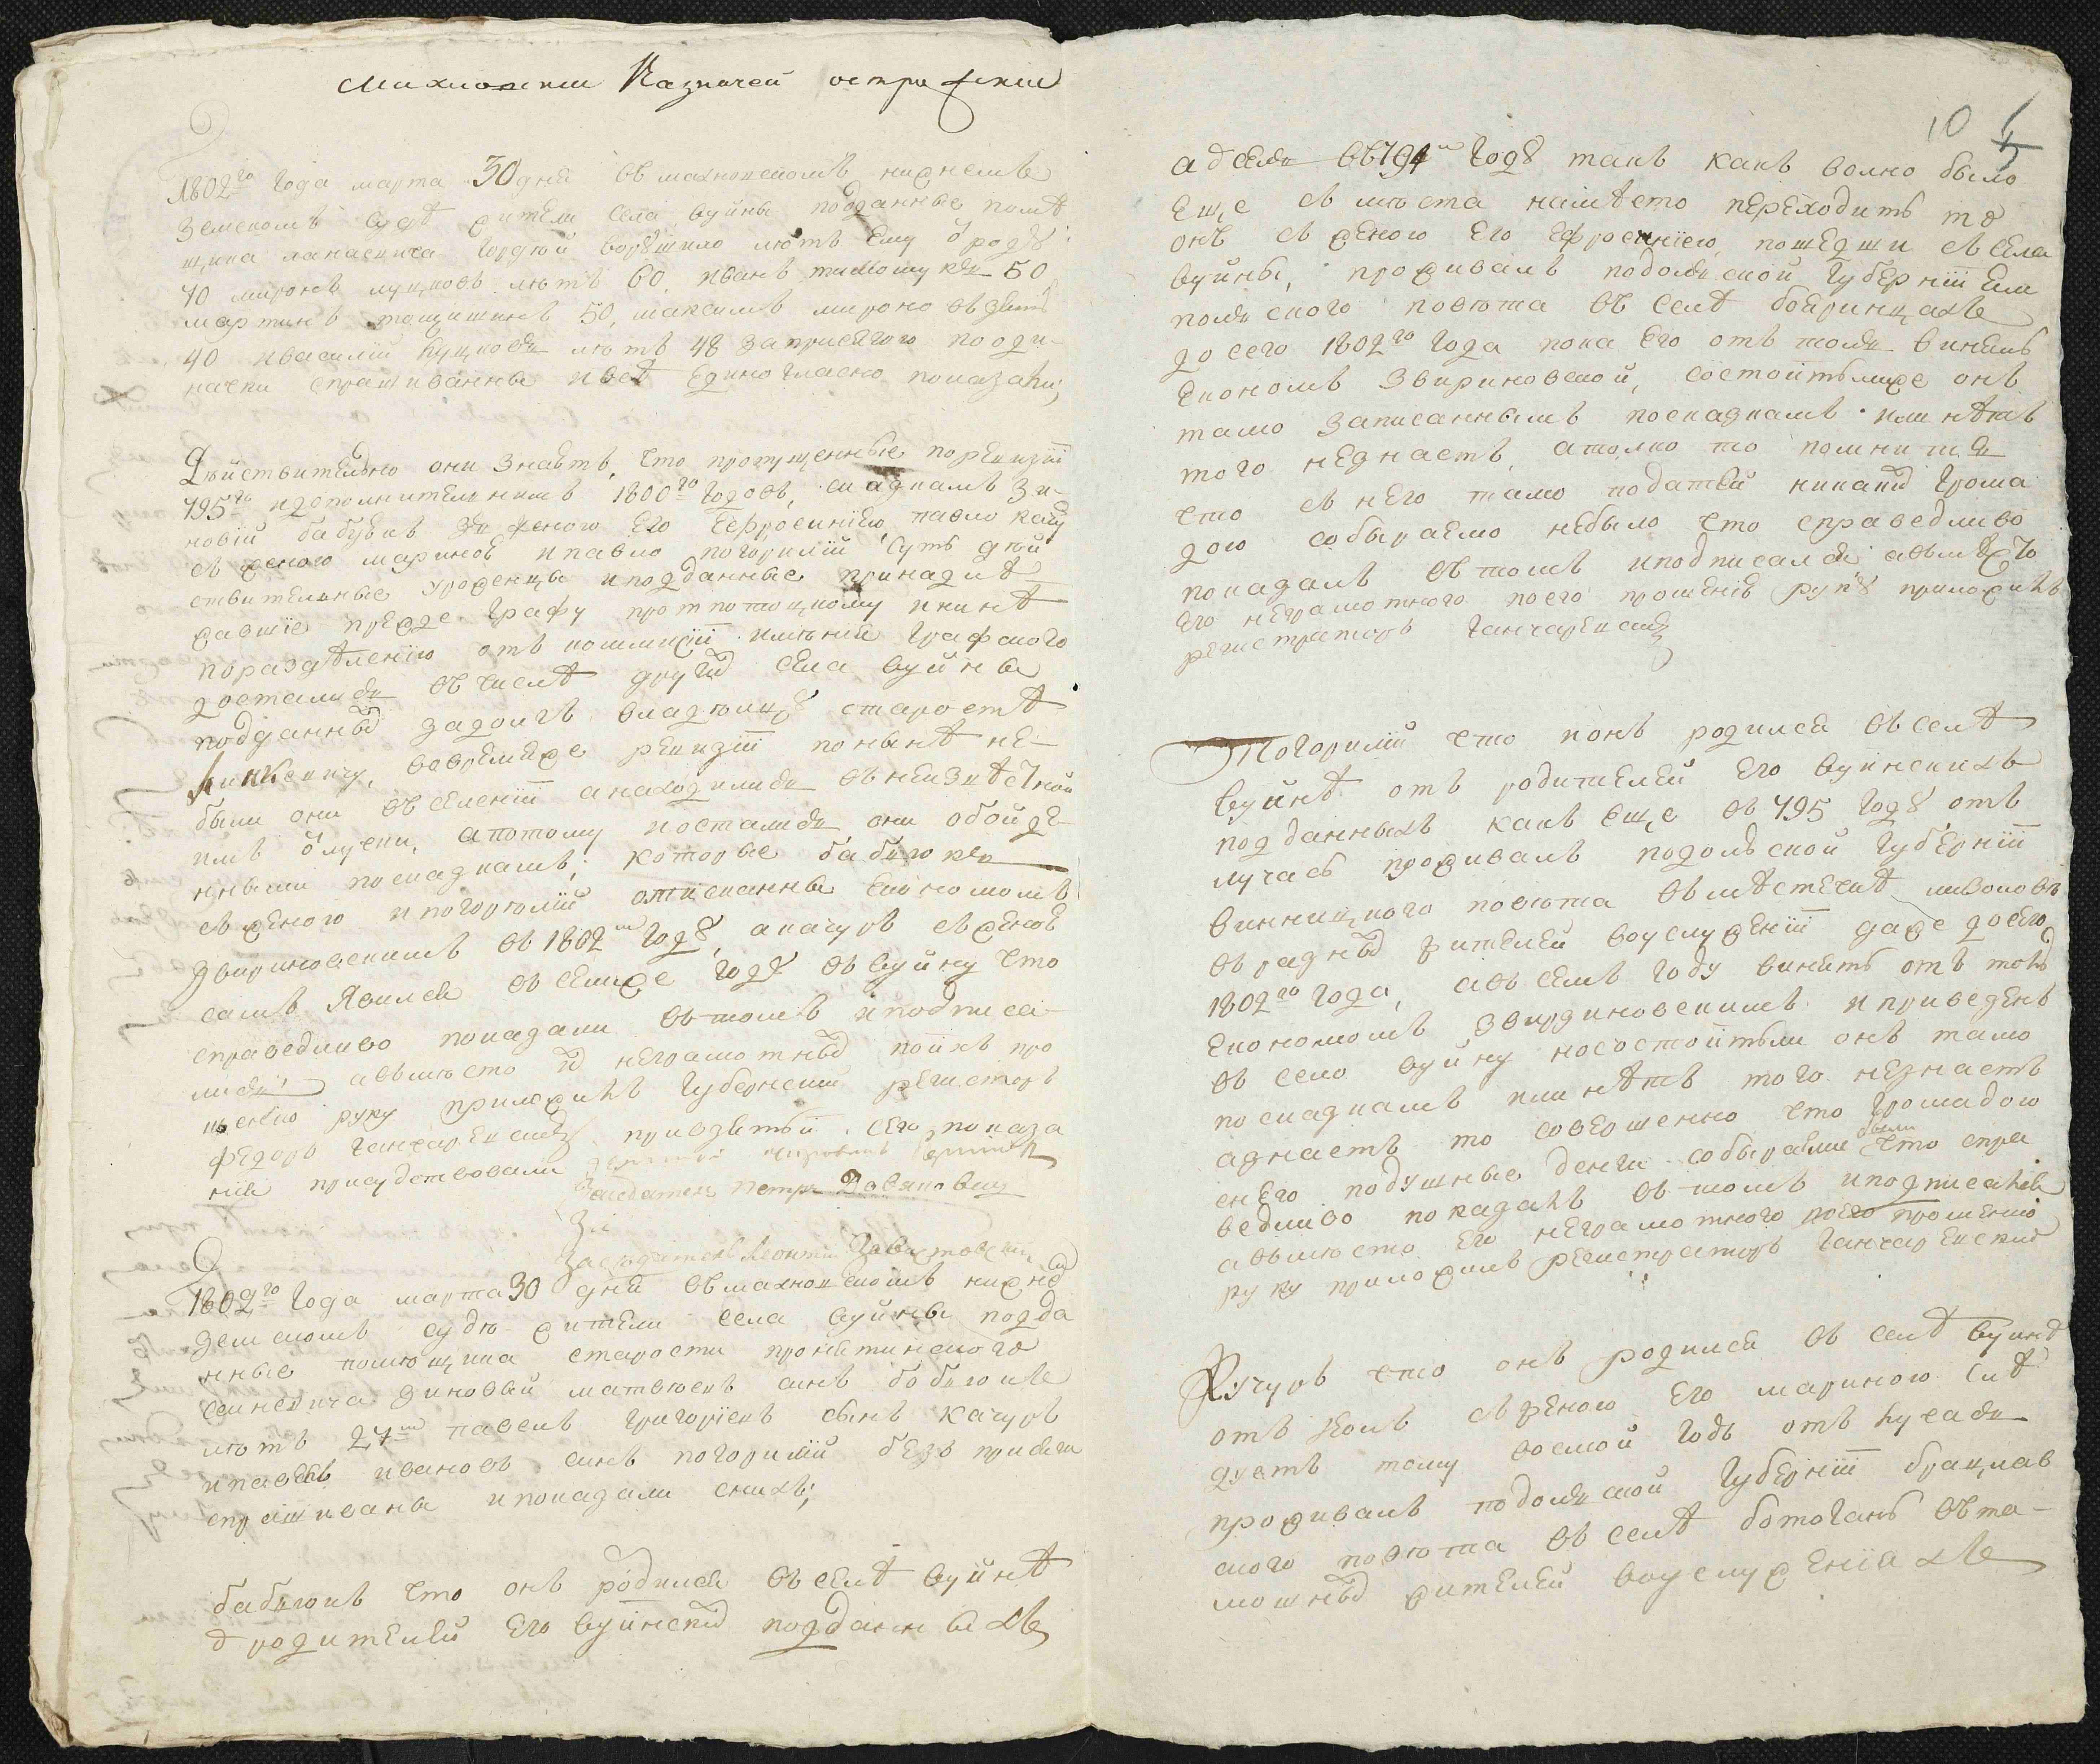 Махновскии Казначей острожскии
1802го года марта 30 дня въ махновскомъ нижнемъ
земскомъ судѣ жители села вуйны подданные помѣ
щика гордѣй ворѹшило лѣтъ ему ѿродѹ
70 миронъ луцковъ лѣтъ 60, иванъ тимошукъ 50
мартинъ 50, максимъ мироно въ
40 ивасилій куцковъ лѣтъ 48 заприсягою пооди-
начки спрашиванны ивсѣ единогласно показали,
Дѣйствительно они знаетъ, что пропущенные поревизіи
795го идополнителнимъ 1800го годовъ, скаскамъ зи-
новій бабѣюкъ зъ женою его Єфросиніею, павло качу
съ женою мариноѣ ипавло погорилій суть дѣй
ствительные уроженцы иподданные принадлѣ
жавшіе прежде графу протпотоцкому инынѣ
пораздѣленію отъ комисіи имѣній графского
досталися въ числѣ другихъ села вуйны
подданныхъ задолгъ владѣлцѹ старостѣ
вовремяже ревизіи понынѣ не-
были они въ селеніи анаходилися въ неизвѣстной
имъ ѿлучки, апотому иосталися они обойде-
нными поскаскамъ; которые бабѣюкъ
съ женою ипогорѣлій отисканны економомъ
Звириновскимъ въ 1802м годѹ, акачуръ съ женоѣ
самъ явился въ семже годѹ въ вуйну что
справедливо показали въ томъ иподписа-
лися, авъмѣсто ихъ неграмотныхъ поихъ про
шенію руку приложилъ губернскій регистръ
федоръ ганчаревскій, приздятьи сего показа
нія присудствовали
Засѣдатель Петръ
За
Засѣдатель Леонтій
1802го года марта 30 дня въ махновскомъ нижнемъ
земскомъ судѣ жители села вуйны подда
нные помѣщика старости
зиновій матвѣевъ синъ бабѣюкъ
лѣтъ 27м павелъ григоріевъ сынъ качуръ
ипавелъ ивановъ синъ погорилій безъ присяги
спрашиваны ипоказали снихъ;
бабѣюкъ что онъ родился въ селѣ вуйнѣ
ѿ родителей его вуйнскихъ подданныхъ
10
5
адсели въ 794м годѹ такъ какъ волно было
еще съ мѣста намѣсто переходить то
онъ съ женою его ефросиніею, пошедши съ села
вуйны, проживалъ подолской губерніи Ям
полского повѣта въ селѣ
до сего 1802го года пока его отъ толя винялъ
економъ Звириновской, состоитълиже онъ
тамо записаннымъ поскаскамъ или нѣтъ
того незнаетъ, атолко то помнитъ
что съ него тамо податей никакихъ грома
дою собыраемо небыло что справедливо
показалъ въ томъ иподписался авъмѣсто
его неграмотного поего прошеніѣ рукѹ приложилъ
регистраторъ Ганчаревский
Погорилій что ионъ родился въ селѣ
вуйнѣ отъ родителей его вуйнскихъ
подданныхъ какъ еще въ 795 годѹ отъ
лучась проживалъ подолской губерніи
винницкого повѣта въ мѣстечкѣ
въ разныхъ жителей воуслуженіи даже досего
1802го года, авъ семъ году винятъ отъ толь
економомъ звириновскимъ иприведенъ
въ село вуйну носостоитъли онъ тамо
поскаскамъ или нѣтъ того незнаетъ
азнаетъ то совершенно что громадою
снего подушные денги собыраеми были что спра
ведливо показалъ въ томъ иподписался
авъмѣсто его неграмотного поего прошенію
руку приложилъ регистраторъ ганчаревский
Качуръ что онъ родился въ селѣ вуинѣ
отъ коль съ женою его мариною
тому восмой годъ отъ
проживалъ подолской губерніи брацлав
ского повѣта въ селѣ въ та-
мошныхъ жителей воуслуженіяхъ